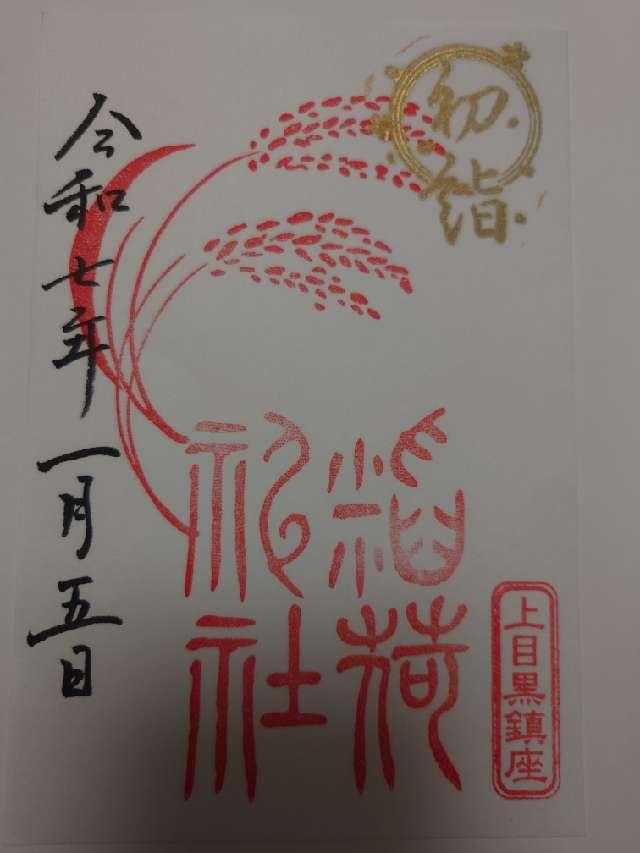 初詣
上目黒鎮座
稲荷
神社
令和七年一月五日